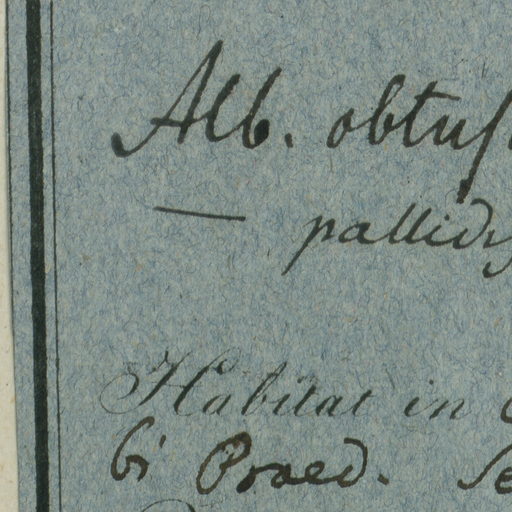 Alb. obtus
— pallidy
Habitat in
bi Praed. Se